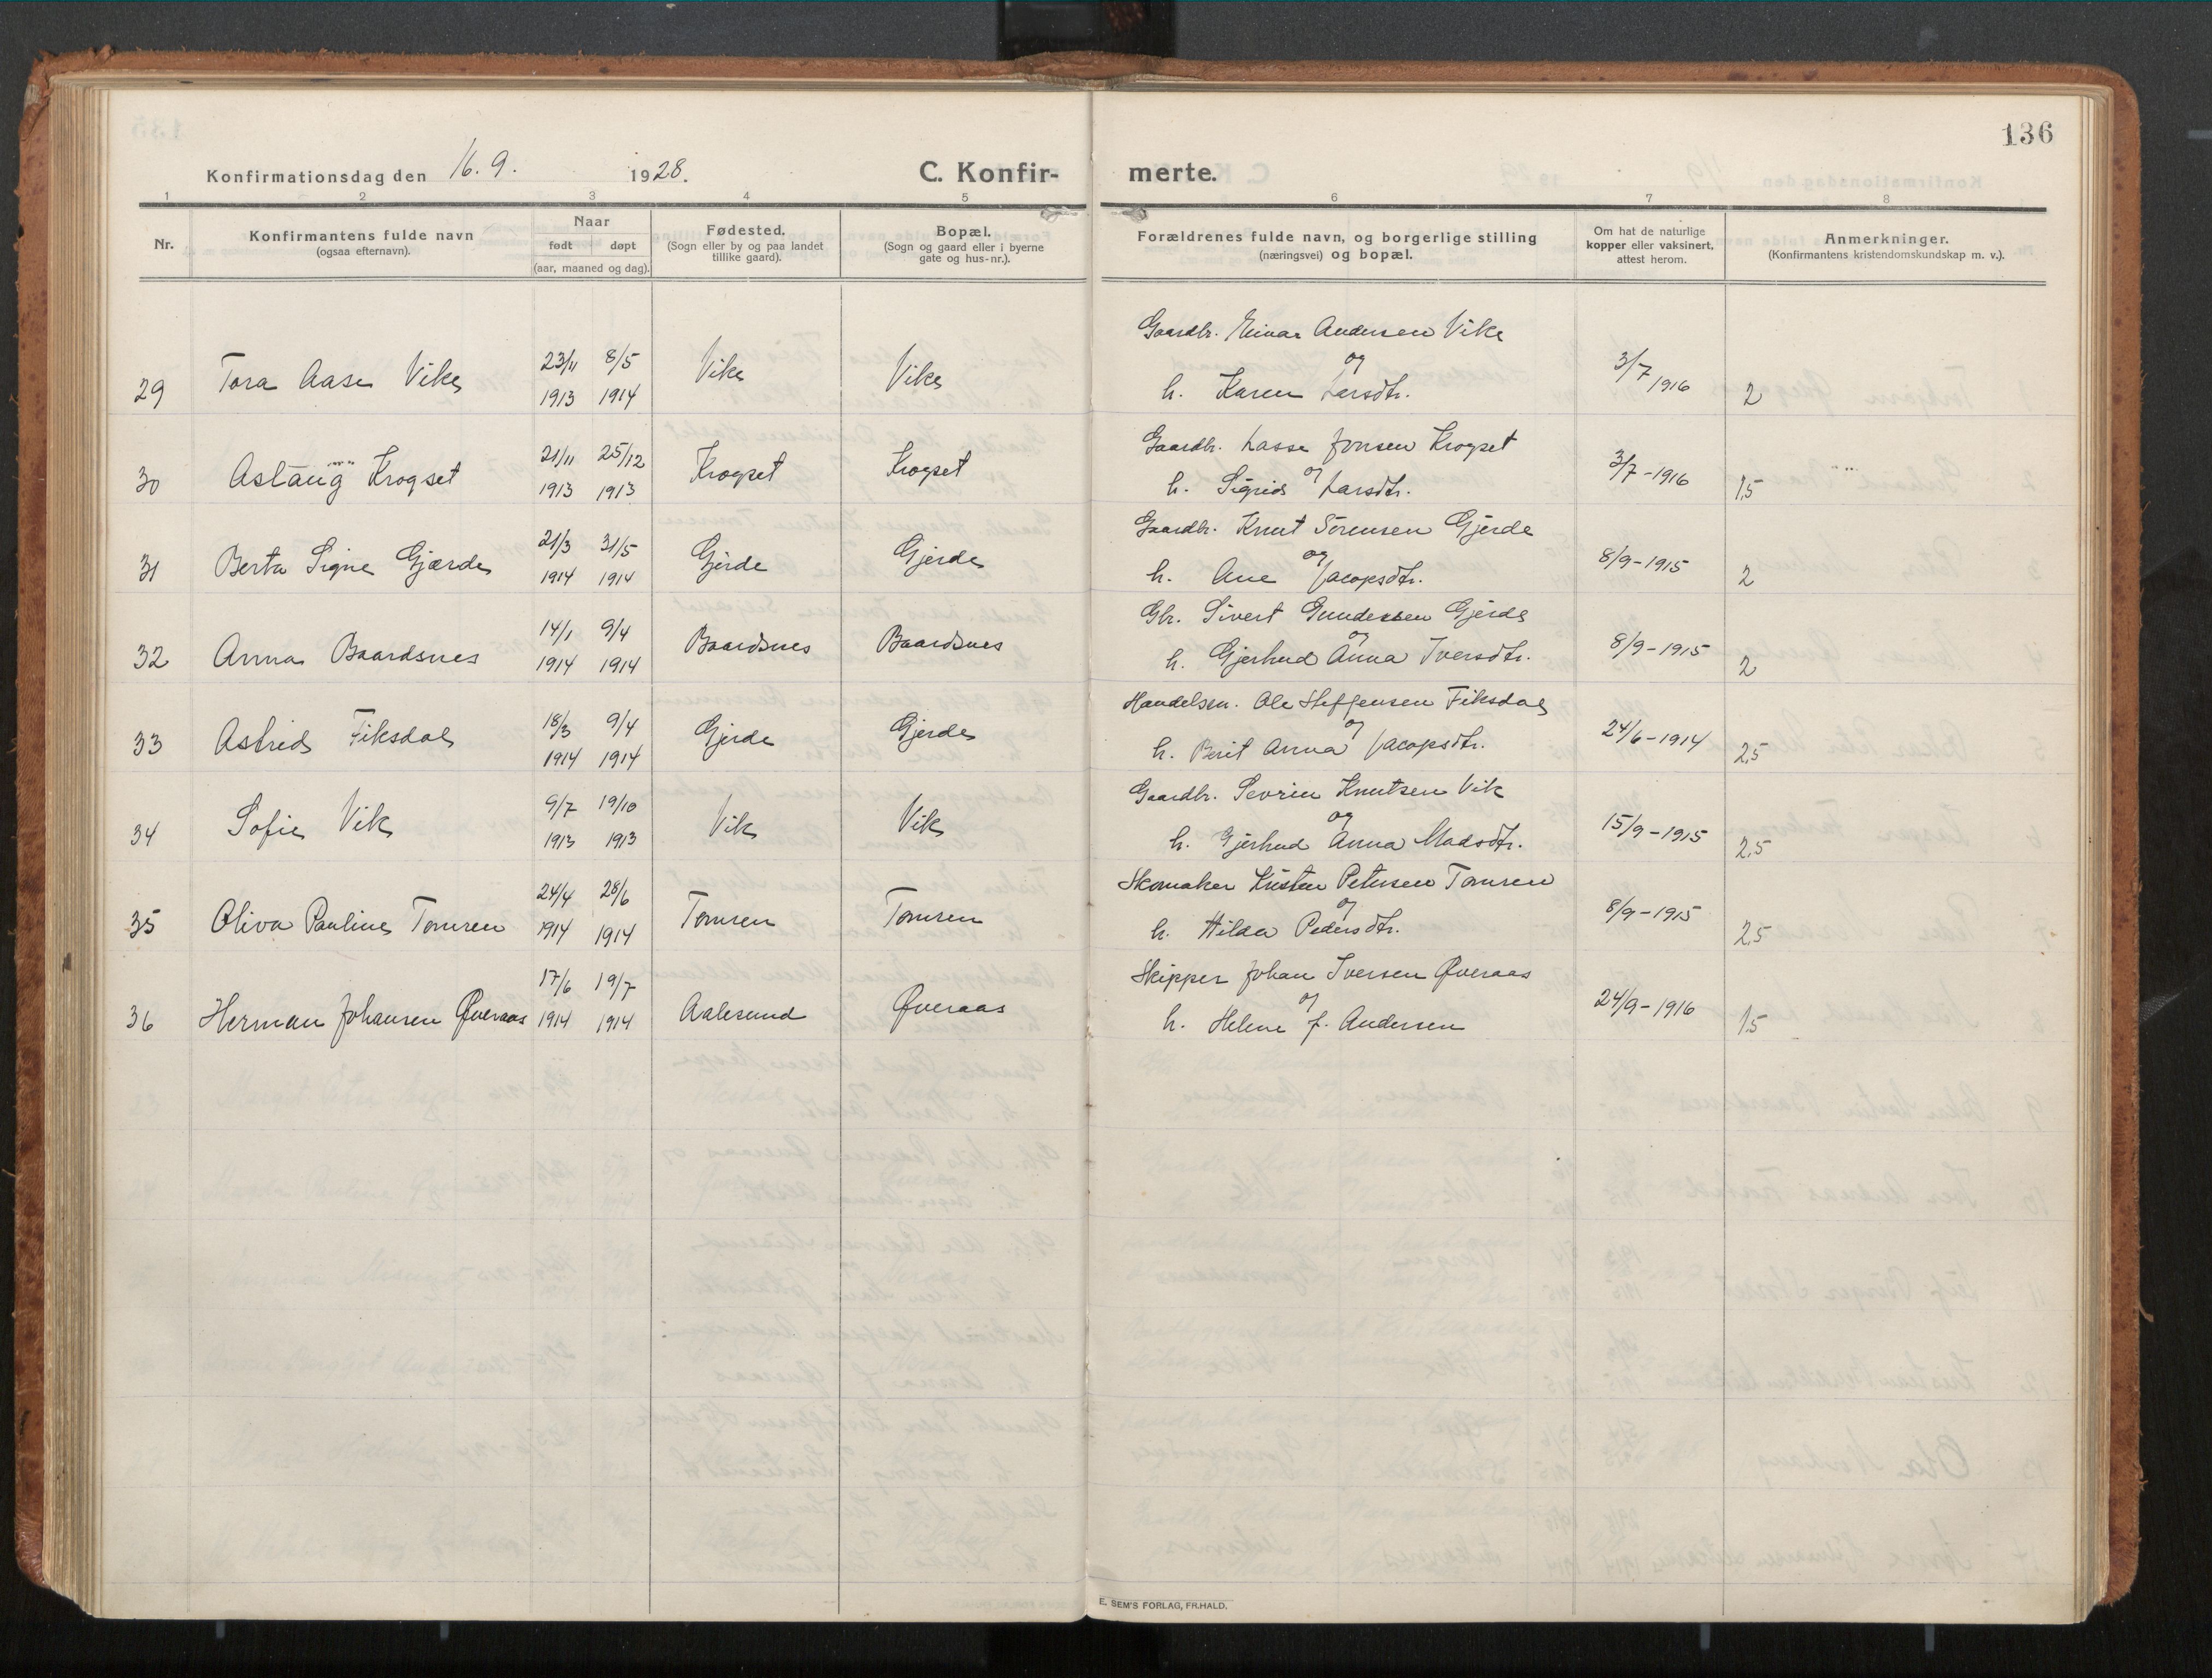 136
Konfirmationsdag den 16. 9. 1928. C. Konfir- merte.
1 2 3 4 5 6 7 8
Nr.
Konfirmantens fulde navn
(ogsaa efternavn).
Naar
født døpt
(aar, maaned og dag).
Fødested.
(Sogn eller by og paa landet
tillike gaard).
Bopæl.
(Sogn og gaard eller i byerne
gate og hus-nr.).
Forældrenes fulde navn, og borgerlige stilling
(næringsvei) og bopæl.
Om hat de naturlige
kopper eller vaksinert,
attest herom.
Anmerkninger.
(Konfirmantens kristendomskundskap m. v.).
Gaardbr. Einar Andersen Vike
29 Tora Aase Vike 23/11 8/5 Vike Vike og 3/7 1916
1913 1914 h. Karen Larsdtr. 2
Gaardbr. Lasse Jonsen Krogset
30 Aslaug Krogset 21/11 25/12 Krogset Krogset og 3/7-1916
1913 1913 h. Sigrid Larsdtr. 1,5
Gaardbr. Knut Sörensen Gjerde
31 Berta Signe Gjærde 21/3 31/5 Gjerde Gjerde og 8/9-1915
1914 1914 h. Ane Jacopsdtr. 2
Gbr. Sivert Gundersen Gjerde
32 Anna Baardsnes 14/1 9/4 Baardsnes Baardsnes og 8/9-1915
1914 1914 h. Gjerhud Anna Iversdtr. 2
Handelsm. Ole Steffensen Fiksdal
33 Astrid Fiksdal 18/3 9/4 Gjerde Gjerde og 24/6-1914
1914 1914 h. Berit Anna Jacopsdtr. 2,5
Gaardbr. Sevrin Knutsen Vik
34 Sofie Vik 9/7 19/10 Vik Vik og 15/9-1915
1913 1913 h. Gjerhud Anna Madsdtr. 2,5
Skomaker Kristen Petersen Tomren
35 Oliva Pauline Tomren 24/4 28/6 Tomren Tomren og 8/9-1915
1914 1914 h. Hilda Pedersdtr. 2,5
Skipper Johan Iversen Øveraas
36 Herman Johansen Øveraas 17/6 19/7 Aalesund Øveraas og 24/9-1916
1914 1914 h. Helene J. Andersen 1,5
E. SEM'S FORLAG, FR.HALD.